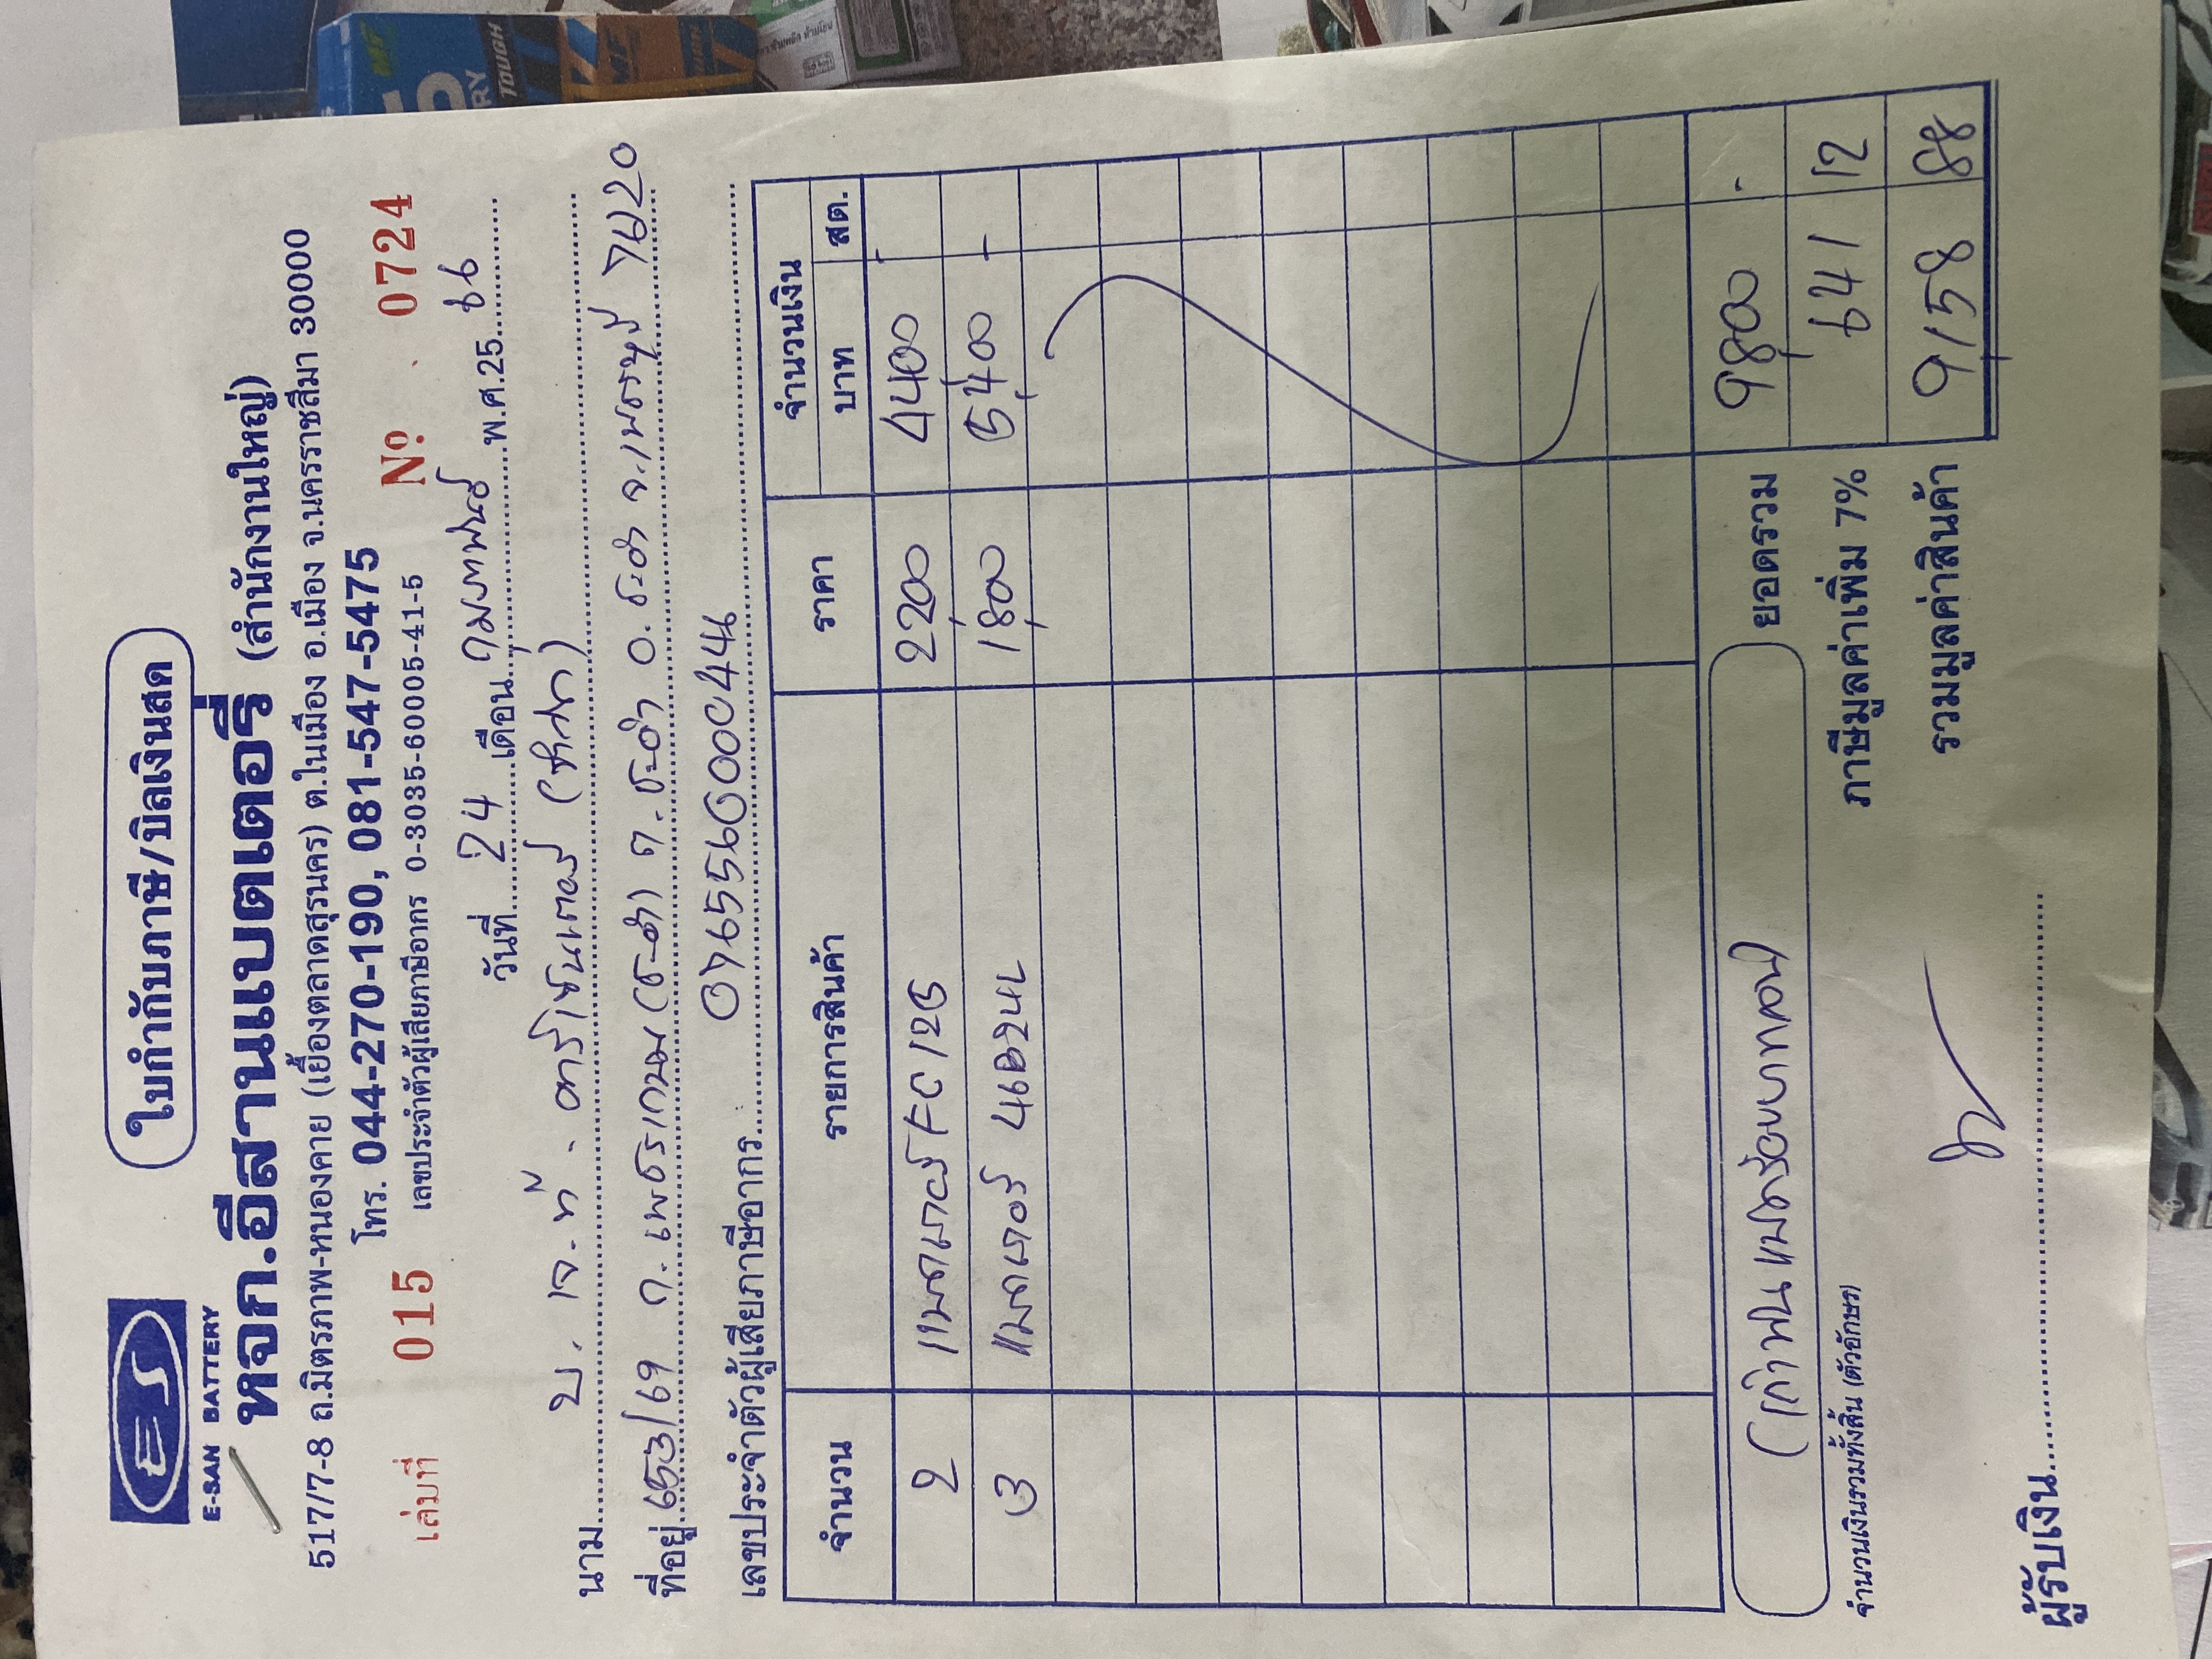 ใบกำกับภาษี/บิลเงินสด
E-SAN BATTERY
หจก.อีสานแบตเตอรี่ (สำนักงานใหญ่)
517/7-8 ถ.มิตรภาพ-หนองคาย (เยื้องตลาดสุรนคร) ต.ในเมือง อ.เมือง จ.นครราชสีมา 30000
โทร. 044-270-190, 081-547-5475
เล่มที่ 015 เลขประจำตัวผู้เสียภาษีอากร 0-3035-60005-41-5 Nº 0724
วันที่ 24 เดือน กุมภาพันธ์ พ.ศ.25 66
นาม บ. เจ.ที.
ที่อยู่ 653/69 ถ. เพชรเกษม (ชะอำ) ต. ชะอำ อ. ชะอำ จ. เพชรบุรี 76120
เลขประจำตัวผู้เสียภาษีอากร 0765560000444
จำนวน รายการสินค้า ราคา จำนวนเงิน
บาท สต.
2 แบตเตอรี่ FC 125 2,200 4,400 -
3 แบตเตอรี่ 46B24L 1,800 5,400 -
ยอดรวม 9,800 -
(เก้าพันแปดร้อยบาทถ้วน)
จำนวนเงินรวมทั้งสิ้น (ตัวอักษร) ภาษีมูลค่าเพิ่ม 7% 641 12
รวมมูลค่าสินค้า 9,158 88
ผู้รับเงิน